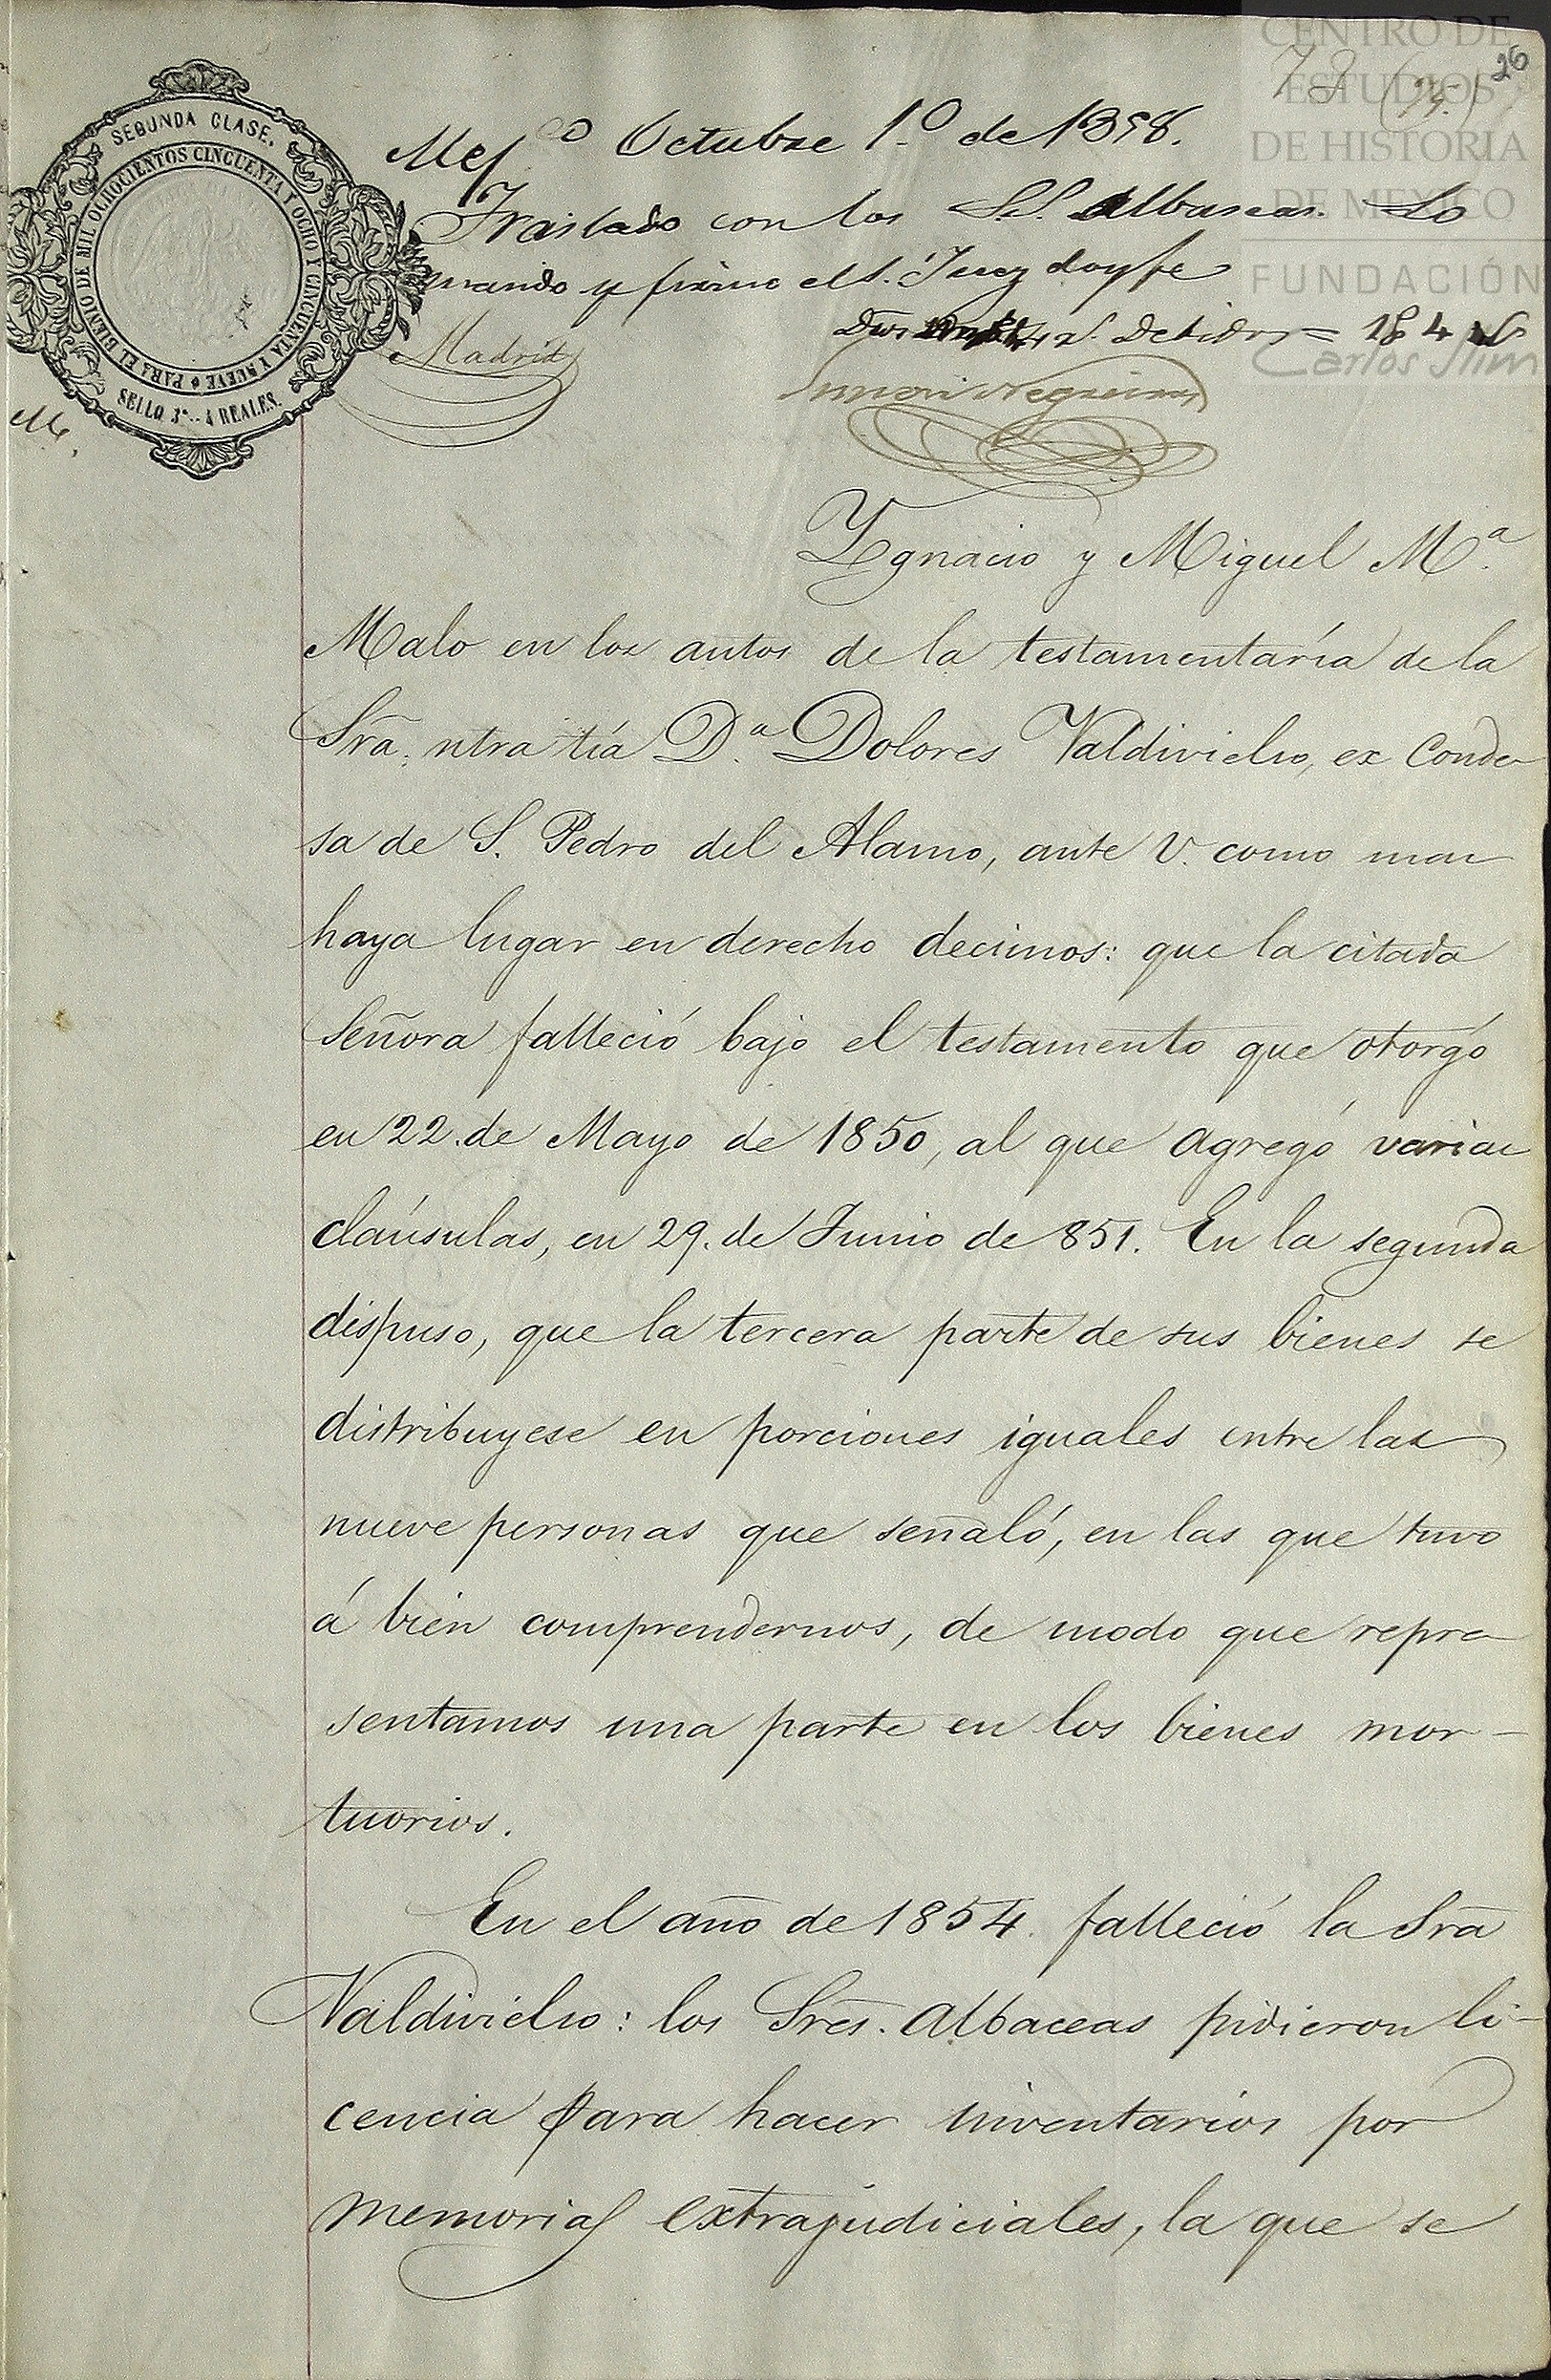 CENTRO DE
ESTUDIOS
DE HISTORIA
DE MEXICO
FUNDACIÓN
Carlos Slim
26
SEGUNDA CLASE.
PARA EL BIENIO DE MIL OCHOCIENTOS CINCUENTA Y OCHO Y CINCUENTA Y NUEVE
SELLO 3º.. 4 REALES.
Mexco Octubre 1.º de 1858.
Traslado con los S.S. Albaceas. Lo
mando y firmo el S. Juez doy fe
Madrid
Dros debidos = 184
Ygnacio y Miguel M.ª
Malo en los autos de la testamentaría de la
Srã. ntra tía D.ª Dolores Valdivielso, ex Conde-
sa de S. Pedro del Alamo, ante V. como mas
haya lugar en derecho decimos: que la citada
Señora falleció bajo el testamento que otorgó
en 22. de Mayo de 1850, al que agregó varias
claúsulas, en 29. de Junio de 851. En la segunda
dispuso, que la tercera parte de sus bienes se
distribuyese en porciones iguales entre las
nueve personas que señaló, en las que tuvo
á bien comprendernos, de modo que repre-
sentamos una parte en los bienes mor-
tuorios.
En el año de 1854. falleció la Srã
Valdivielso: los Sres. Albaceas pidieron li-
cencia para hacer inventarios por
memorias extrajudiciales, la que se